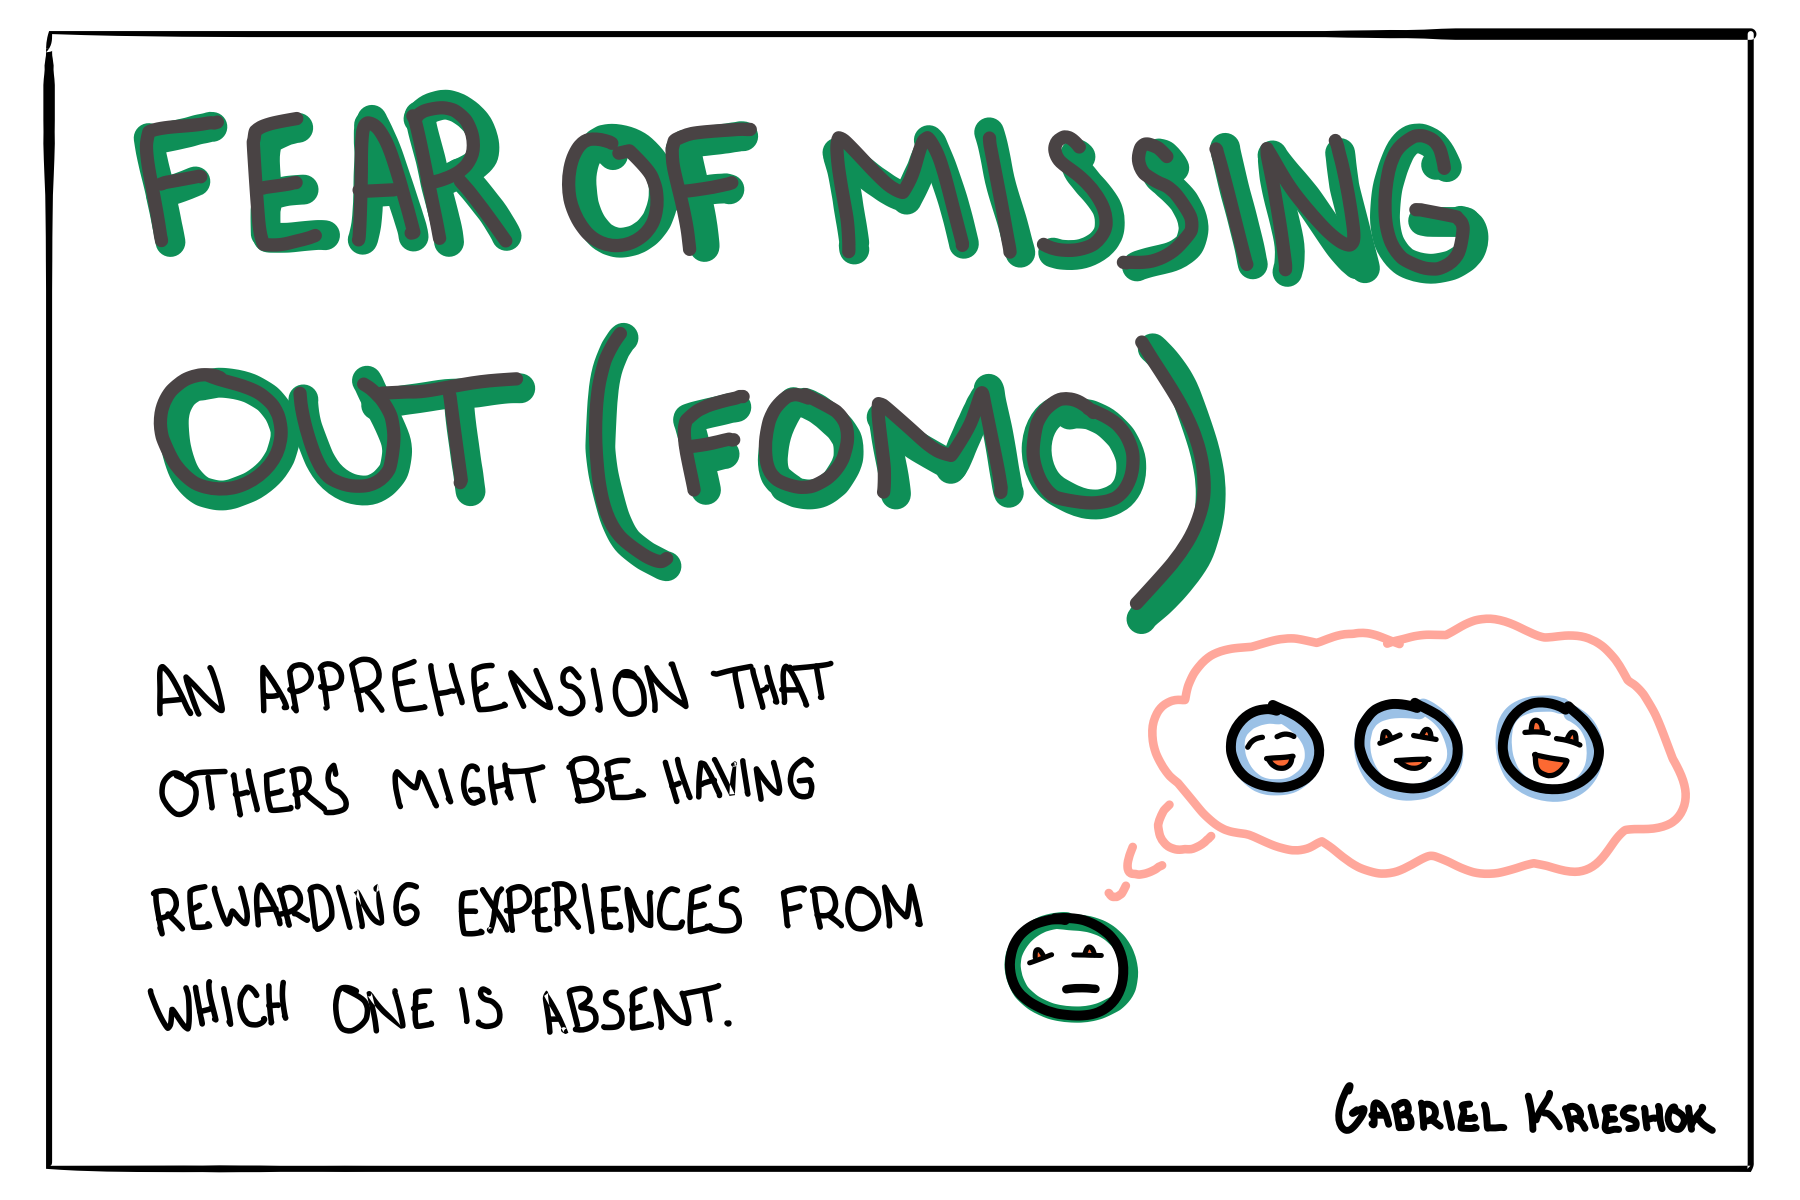 FEAR OF MISSING
OUT (FOMO)
AN APPREHENSION THAT
OTHERS MIGHT BE HAVING
REWARDING EXPERIENCES FROM
WHICH ONE IS ABSENT.
GABRIEL KRIESHOK